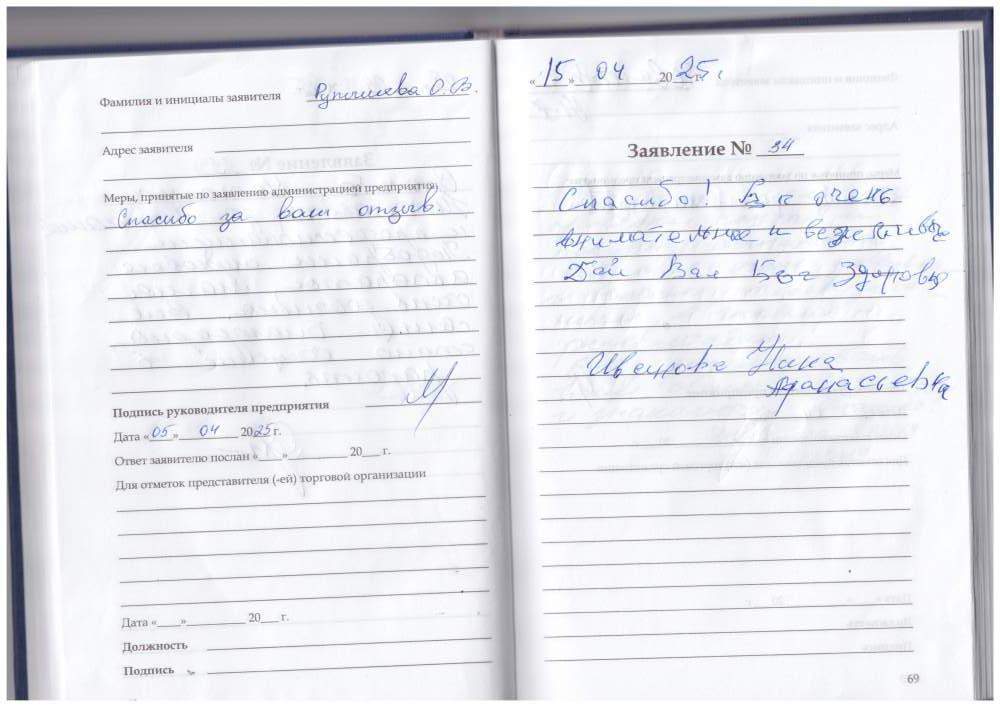 Фамилия и инициалы заявителя О.В.
Адрес заявителя
Меры, принятые по заявлению администрацией предприятия
Спасибо за ваш отзыв.
Подпись руководителя предприятия
Дата «05» 04 2025 г.
Ответ заявителю послан «___»__________ 20___ г.
Для отметок представителя (-ей) торговой организации
Дата «___»__________ 20___ г.
Должность
Подпись
«15» 04 2025 г.
Заявление № 34
Спасибо! Вы очень
внимательные и вежливы
Дай Вам Бог Здоровья
Нина
Афанасьевна
69